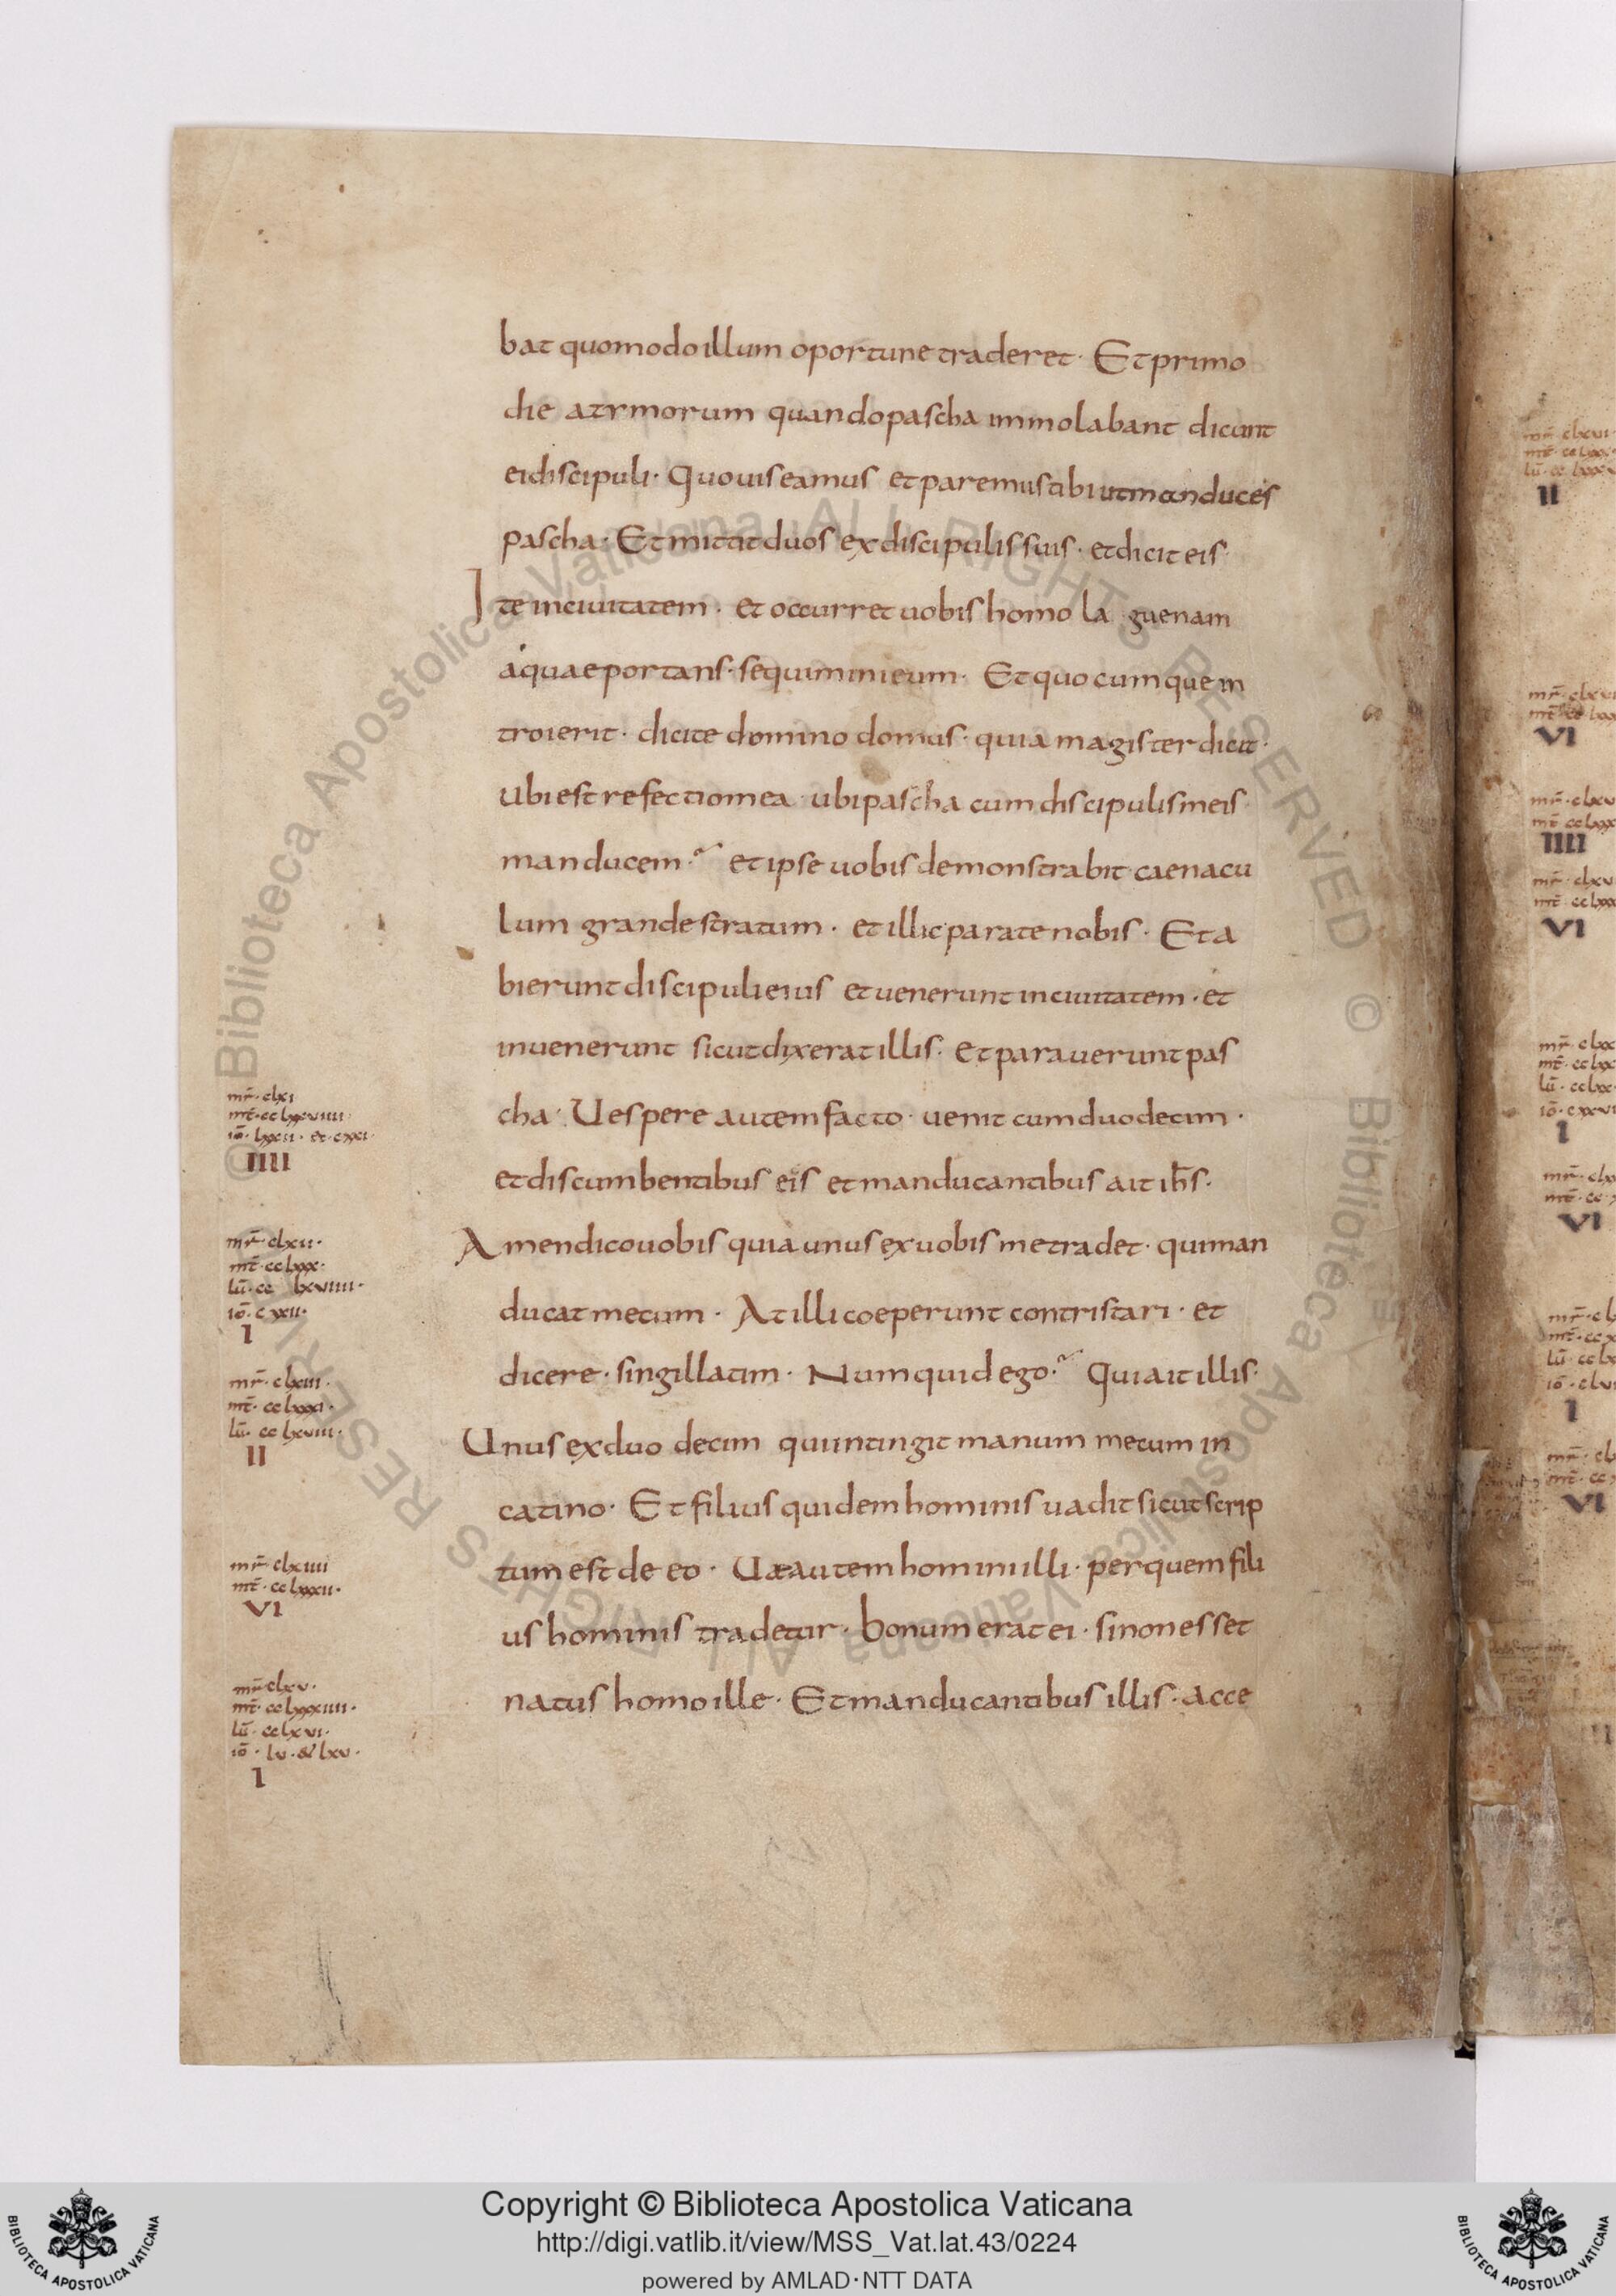 bat quomodo illum oportune traderet · Et primo
die azymorum quando pascha immolabant dicunt
ei discipuli · Quo uis eamus et paremus tibi ut manduces
pascha · Et mittit duos ex discipulis suis · et dicit eis
Ite in ciuitatem · et occurret uobis homo la guenam
aquae portans · sequimini eum · Et quocumque in
troierit · dicite domino domus · quia magister dicit ·
Ubi est refectio mea · ubi pascha cum discipulis meis
manducem · et ipse uobis demonstrabit caenacu
lum grande stratum · et illic parate nobis · Et a
bierunt discipuli eius et uenerunt in ciuitatem · et
inuenerunt sicut dixerat illis · et parauerunt pas
cha · Uespere autem facto · uenit cum duodecim ·
et discumbentibus eis et manducantibus ait ihs̄ ·
Amen dico uobis quia unus ex uobis me tradet · qui man
ducat mecum · At illi coeperunt contristari · et
dicere · singillatim · Numquid ego · Qui ait illis ·
Unus ex duodecim qui intingit manum mecum in
catino · Et filius quidem hominis uadit sicut scrip
tum est de eo · Uae autem homini illi · per quem fili
us hominis tradetur · bonum erat ei · si non esset
natus homo ille · Et manducantibus illis · acce
mr̄ · clxi
mt̄ · cclxxviiii ·
iō · lxxii · et · cxxi ·
IIII
mr̄ · clxii ·
mt̄ · cclxxx ·
lū · cc lxviiii ·
iō · cxxii ·
I
mr̄ · clxiii ·
mt̄ · cclxxxi ·
lū · cclxviii ·
II
mr̄ · clxiiii
mt̄ · cclxxxii ·
VI
mr̄ · clxv ·
mt̄ · cclxxxiiii ·
lū · cclxvi ·
iō · lv · & lxv ·
I
II
VI
IIII
VI
I
VI
I
VI
© Biblioteca Apostolica Vaticana ALL RIGHTS RESERVED
© Biblioteca Apostolica Vaticana ALL RIGHTS RESERVED
Copyright © Biblioteca Apostolica Vaticana
http://digi.vatlib.it/view/MSS_Vat.lat.43/0224
powered by AMLAD·NTT DATA
BIBLIOTECA APOSTOLICA VATICANA
BIBLIOTECA APOSTOLICA VATICANA